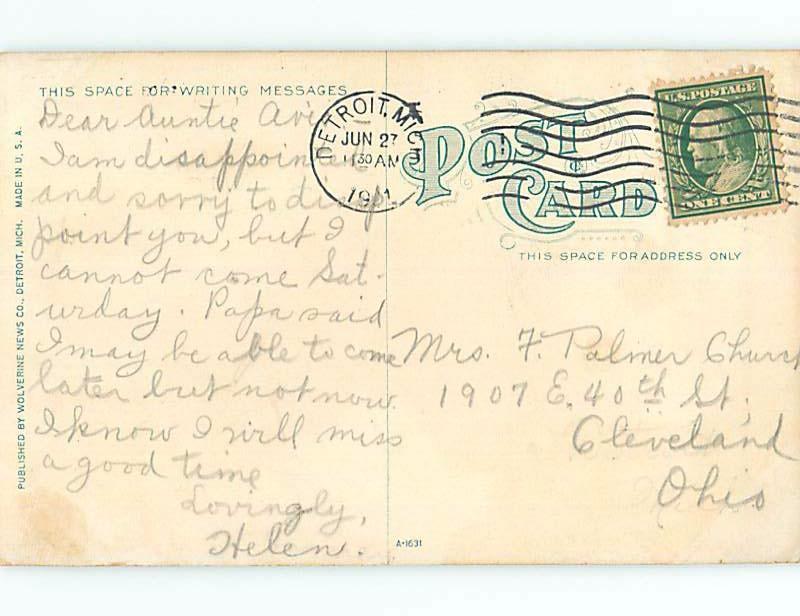 THIS SPACE FOR WRITING MESSAGES
Dear Auntie
I am disappointed
and sorry to disap-
point you, but I
cannot come Sat-
urday. Papa said
I may be able to come
later but not now.
I know I will miss
a good time
Lovingly,
Helen.
PUBLISHED BY WOLVERINE NEWS CO., DETROIT, MICH. MADE IN U.S.A.
DETROIT, MICH
JUN 27
11 30 AM
1911
U.S. POSTAGE
ONE CENT
POST
CARD
THIS SPACE FOR ADDRESS ONLY
Mrs. F. Palmer Church
1907 E. 40th St.
Cleveland
Ohio
A-1631